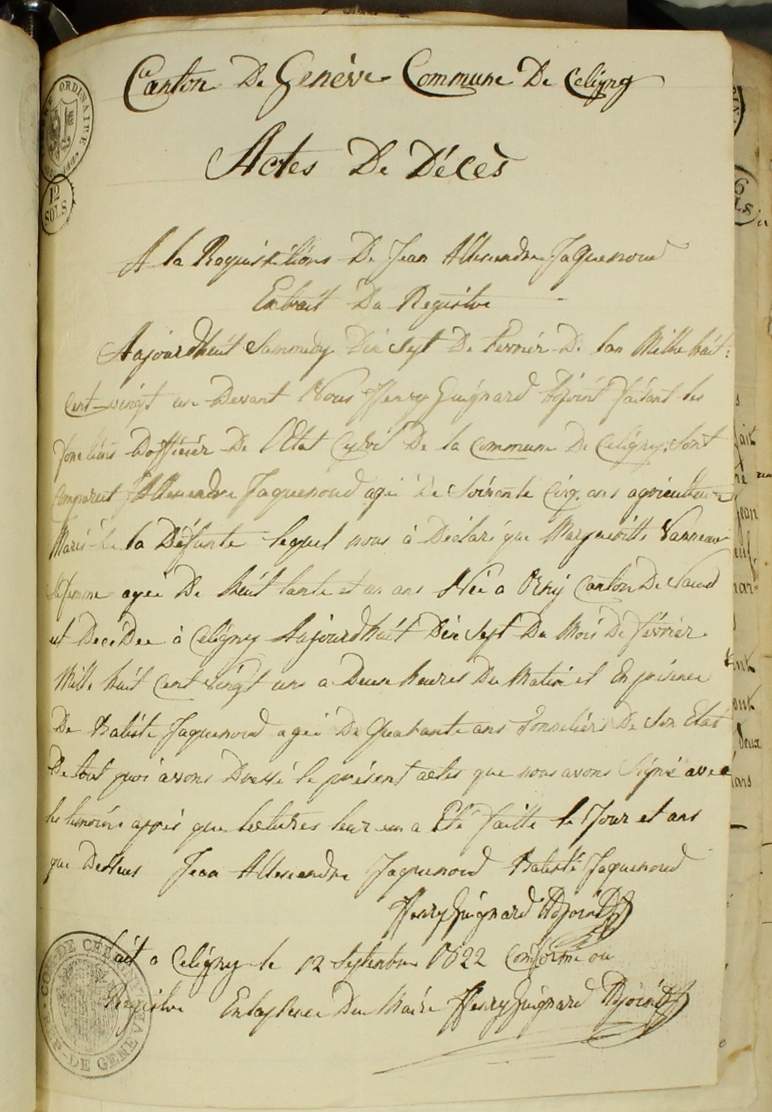 Canton De Genève Commune De Celigny
Actes De Décès
ORDINAIRE
12
SOLS
A la Requisitions De Jean Allexendre Jaquenoud
Extrait Du Registre
Aujourdhuit Sammedy Dix Sept De Fevrier De Lan Mille huit
Cent vingt un Devant Nous Henry Guignard Adjoint faisant les
fonctions Dofficier De l'Etat Cyvil De la Commune De Celigny, sont
Comparut J Allexendre Jaquenoud agé De Soixante Cinq ans agriculteur
Marié de la Défunte lequel nous à Déclaré que Margueritte Vanneau
sa femme agée De huit tante et un ans Née a Orny Canton De Vaud
est Décédée à Celigny Aujourdhuit Dix Sept Du Mois De février
Mille huit Cent vingt uns a Deux heures Du Matin et En présence
De Batiste Jaquenoud agée De Quarante ans Tonnelier De Son Etat
De tout quoi avons Dressé le présent actes que nous avons Signé avec
les témoins apprés que lectures leur en a Eté faitte le Jour et ans
que Dessus Jean Allexendre Jaquenoud Batiste Jaquenoud
Henry Guignard Adjoint
fait a Celigny le 12 Septembre 1822 Conforme au
Registre En labsence Du Maire Henry Guignard Adjoint
COM. DE CELIGNY
REP. DE GENEVE